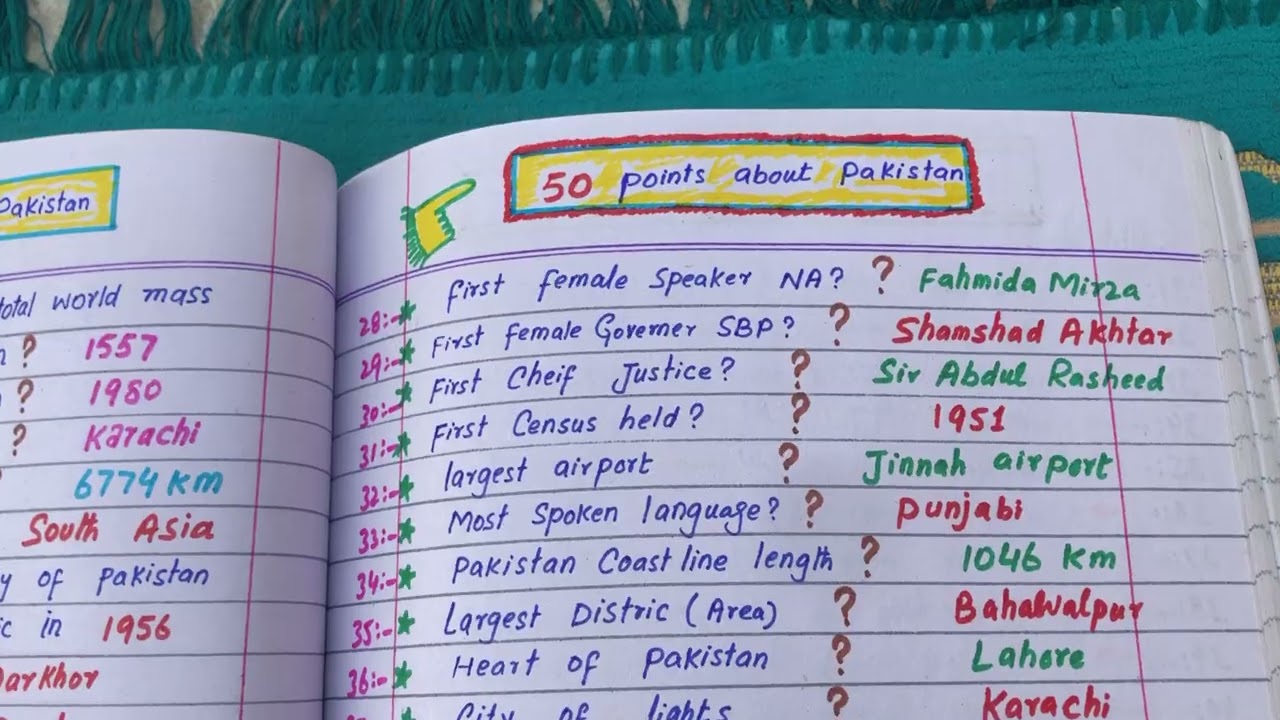 Pakistan
total world mass
? 1557
? 1980
? Karachi
6774 km
South Asia
y of Pakistan
ic in 1956
arkhor
50 points about Pakistan
28:-* First female Speaker NA? ? Fahmida Mirza
29:-* First female Governer SBP? ? Shamshad Akhtar
30:-* First Cheif Justice? ? Sir Abdul Rasheed
31:-* First Census held? ? 1951
32:-* largest airport ? Jinnah airport
33:-* Most Spoken language? ? Punjabi
34:-* Pakistan Coast line length ? 1046 Km
35:-* Largest Distric (Area) ? Bahalwalpur
36:-* Heart of Pakistan ? Lahore
City of lights ? Karachi